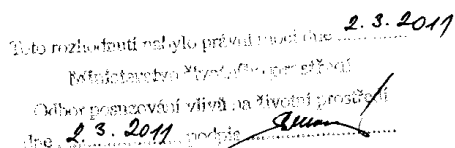 Toto rozhodnutí nabylo právní moci dne 2.3.2011
Ministerstvo životního prostředí
Odbor posuzování vlivů na životní prostředí
dne 2.3.2011 podpis